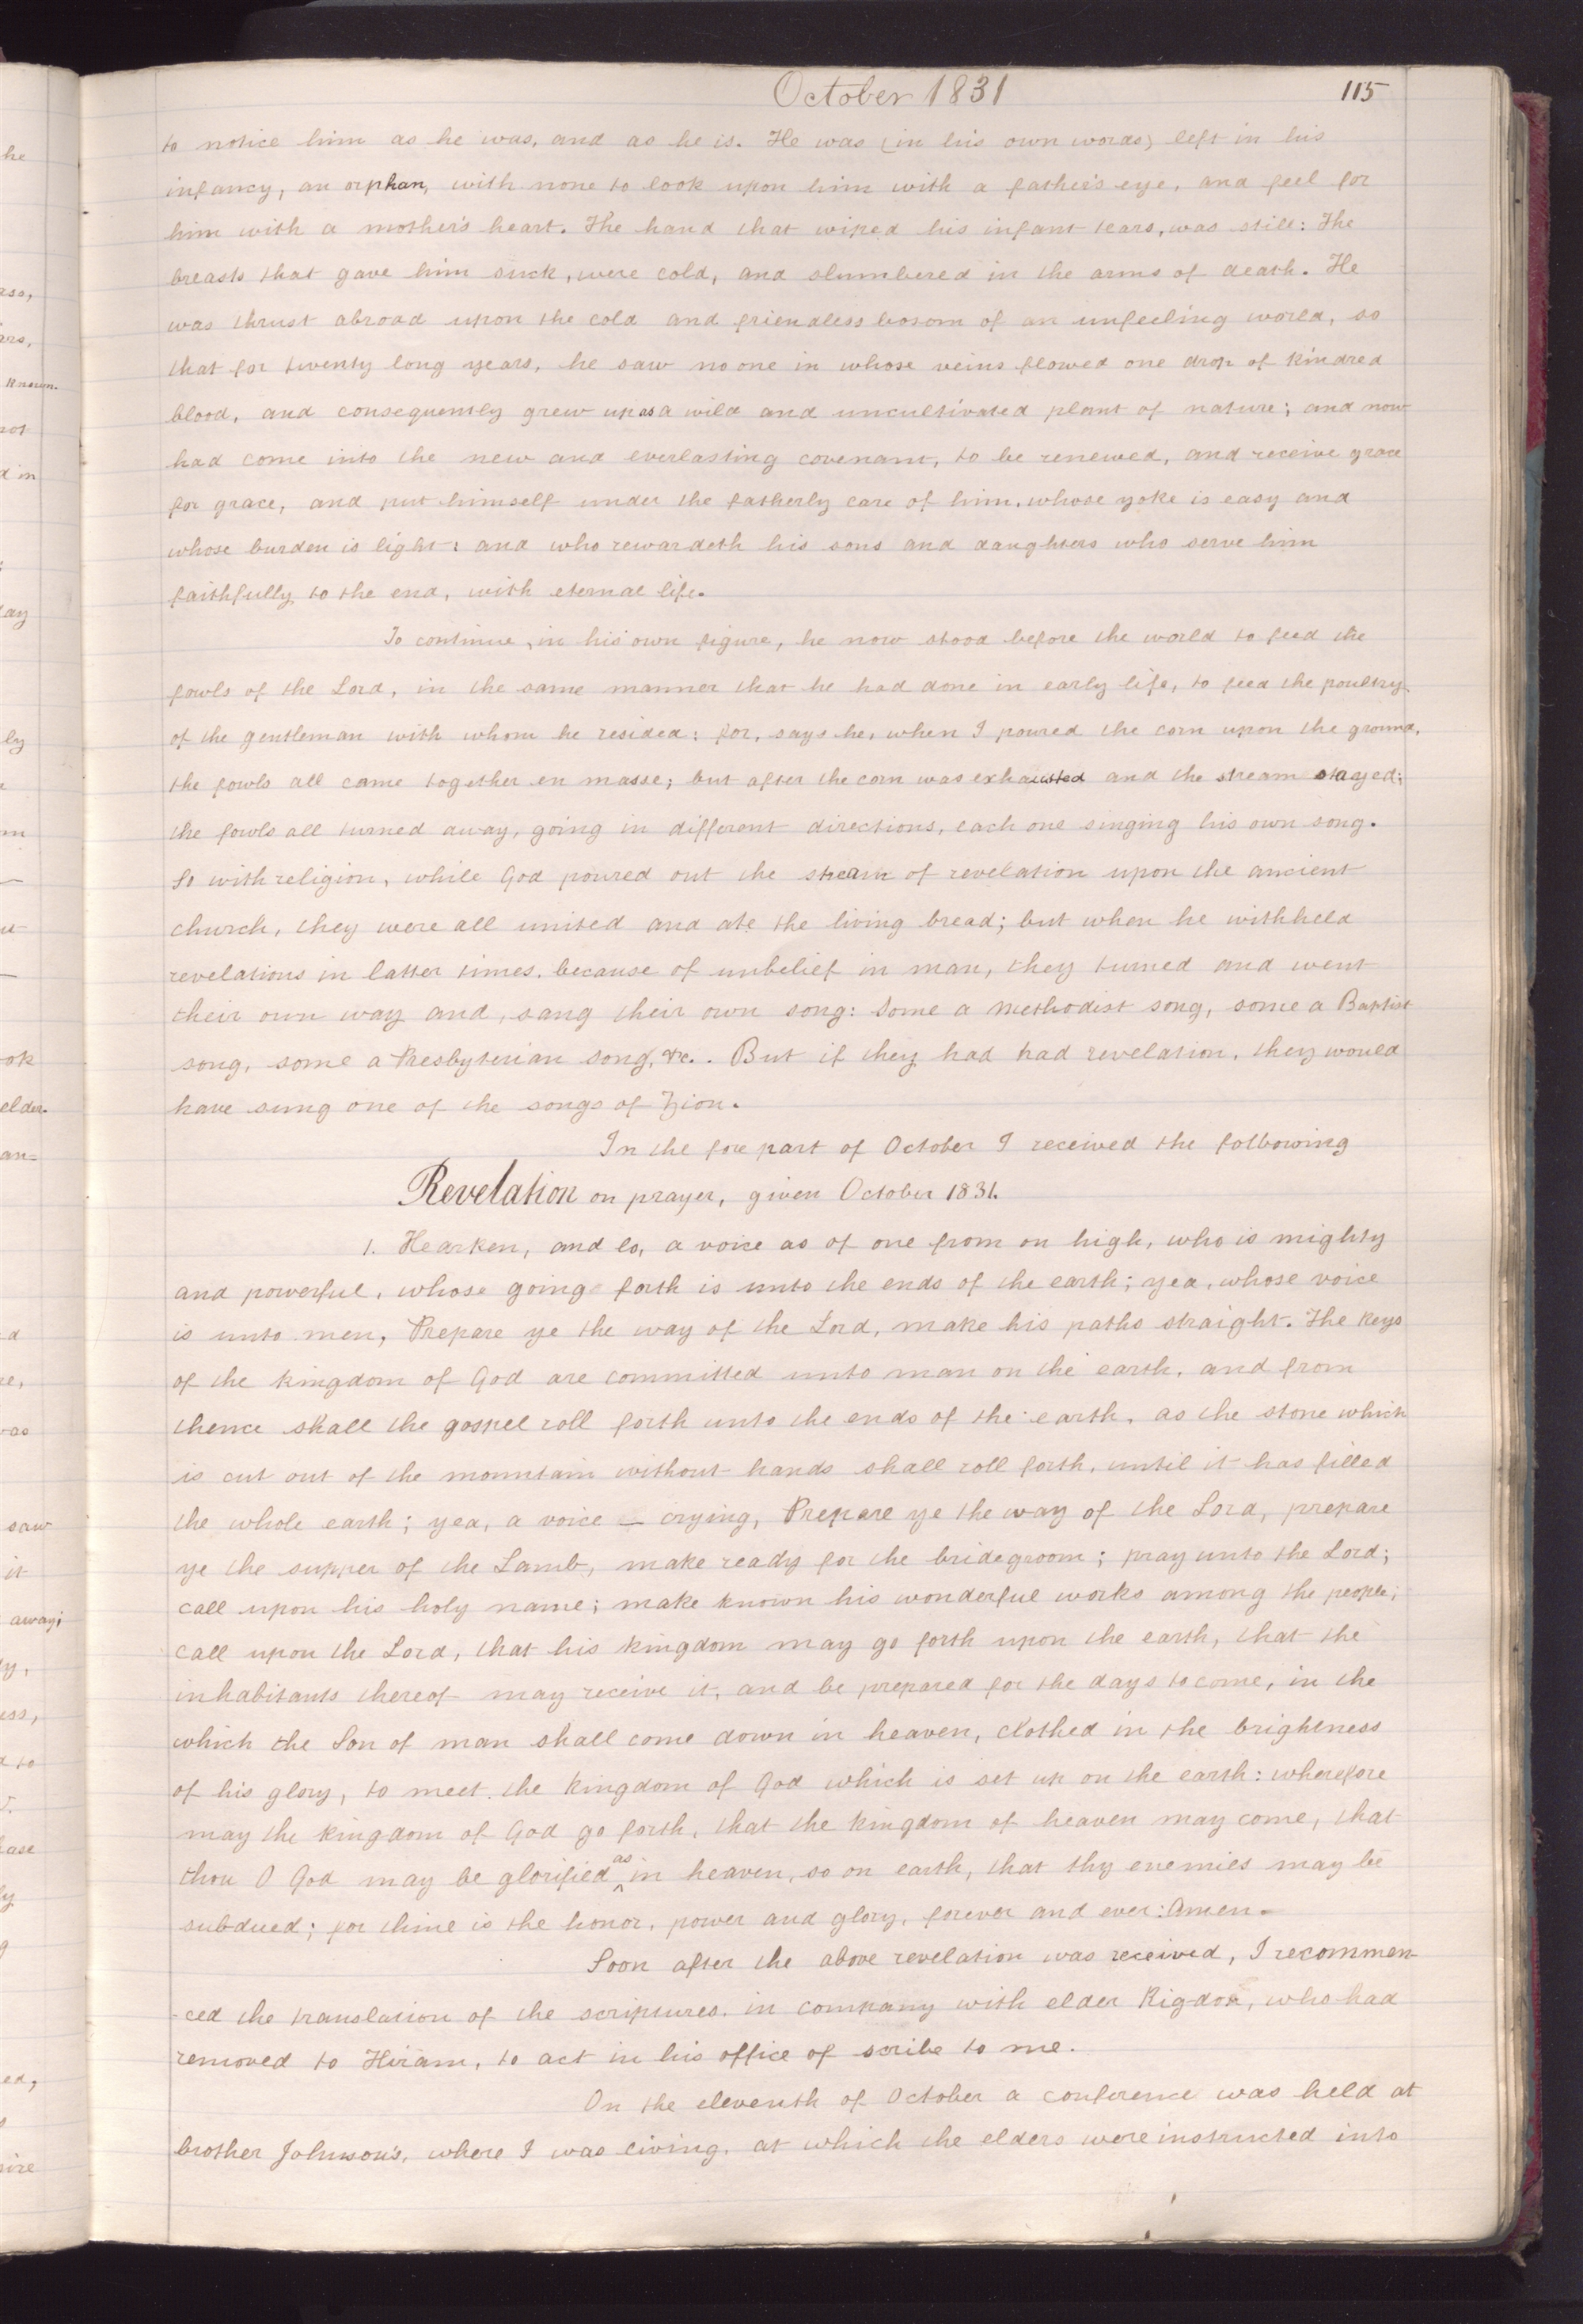 October 1831
115
to notice him as he was, and as he is. He was (in his own words) left in his
infancy, an orphan, with none to look upon him with a father's eye, and feel for
him with a mother's heart. The hand that wiped his infant tears, was still: The
breasts that gave him suck, were cold, and slumbered in the arms of death. He
was thrust abroad upon the cold and friendless bosom of an unfeeling world, so
that for twenty long years, he saw no one in whose veins flowed one drop of kindred
blood, and consequently grew up as a wild and uncultivated plant of nature; and now
had come into the new and everlasting covenant, to be renewed, and receive grace
for grace, and put himself under the fatherly care of him, whose yoke is easy and
whose burden is light: and who rewardeth his sons and daughters who serve him
faithfully to the end, with eternal life.
To continue, in his own figure, he now stood before the world to feed the
fowls of the Lord, in the same manner that he had done in early life, to feed the poultry
of the gentleman with whom he resided: for, says he, when I poured the corn upon the ground,
the fowls all came together en masse; but after the corn was exhausted and the stream stayed;
the fowls all turned away, going in different directions, each one singing his own song.
So with religion, while God poured out the stream of revelation upon the ancient
church, they were all united and ate the living bread; but when he withheld
revelations in latter times, because of unbelief in man, they turned and went
their own way and, sang their own song: Some a Methodist song, some a Baptist
song, some a Presbyterian song, &c. But if they had had revelation, they would
have sung one of the songs of Zion.
In the fore part of October I received the following
Revelation on prayer, given October 1831.
1. Hearken, and lo, a voice as of one from on high, who is mighty
and powerful, whose going forth is unto the ends of the earth; yea, whose voice
is unto men, Prepare ye the way of the Lord, make his paths straight. The keys
of the kingdom of God are committed unto man on the earth, and from
thence shall the gospel roll forth unto the ends of the earth, as the stone which
is cut out of the mountain without hands shall roll forth, until it has filled
the whole earth; yea, a voice — crying, Prepare ye the way of the Lord, prepare
ye the supper of the Lamb, make ready for the bridegroom; pray unto the Lord;
call upon his holy name; make known his wonderful works among the people;
call upon the Lord, that his kingdom may go forth upon the earth, that the
inhabitants thereof may receive it, and be prepared for the days to come, in the
which the Son of man shall come down in heaven, clothed in the brightness
of his glory, to meet the kingdom of God which is set up on the earth: wherefore
may the kingdom of God go forth, that the kingdom of heaven may come, that
thou O God may be glorified as in heaven, so on earth, that thy enemies may be
subdued; for thine is the honor, power and glory, forever and ever: Amen.
Soon after the above revelation was received, I recommen
-ced the translation of the scriptures. in company with elder Rigdon, who had
removed to Hiram, to act in his office of scribe to me.
On the eleventh of October a conference was held at
brother Johnson's, where I was living, at which the elders were instructed into